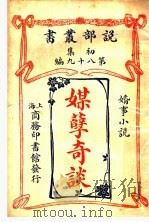 說部叢書
初集
第八十九編
婚事小說
媒孽奇談
上海
商務印書館發行